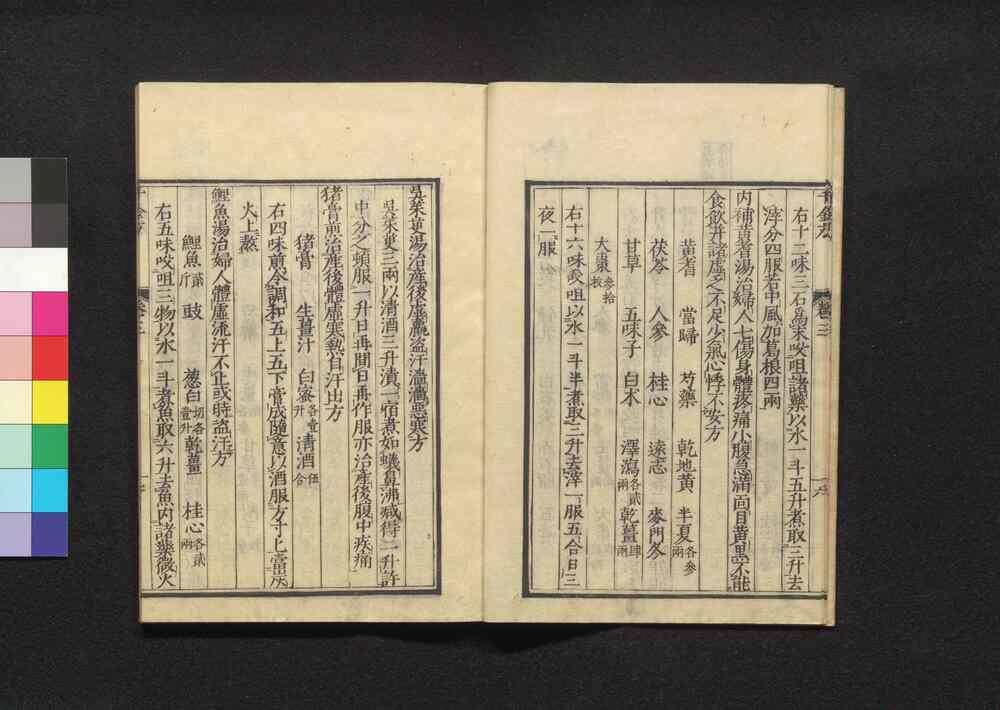 右十二味三石爲末㕮咀諸藥以水一斗五升煮取三升去
滓分四服若中風加葛根四兩
内補黄耆湯治婦人七傷身體疼痛小腹急滿面目黄黒不能
食飲并諸虚乏不足少氣心悸不安方
黄耆 當歸 芍藥 乾地黄 半夏各参兩
茯苓 人參 桂心 遠志 麥門冬
甘草 五味子 白朮 澤瀉各貳兩 乾薑肆兩
大棗参拾枚
右十六味㕮咀以水一斗半煮取三升去滓一服五合日三
夜一服
呉茱萸湯治産後虚羸盗汗濇濇惡寒方
呉茱萸三兩以清酒三升漬一宿煮如蟻鼻沸減得二升許
中分之頓服一升日再間日再作服亦治産後腹中疾痛
猪膏煎治産後體虚寒熱自汗出方
猪膏 生薑汁 白蜜各壹升 清酒伍合
右四味煎令調和五上五下膏成隨意以酒服方寸匕當炭
火上熬
鯉魚湯治婦人體虚流汗不止或時盗汗方
鯉魚貳斤 豉 葱白切各壹升 乾薑 桂心各貳兩
右五味㕮咀三物以水一斗煮魚取六升去魚内諸藥微火
卷三